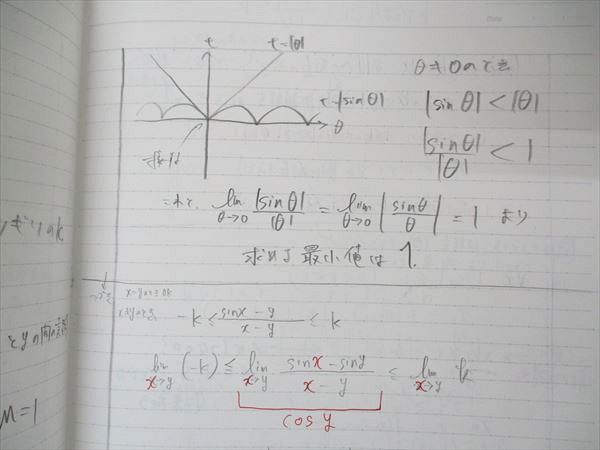 t
t=|θ|
t=|sin θ|
θ
接する
θ≠0のとき
|sin θ| < |θ|
|sin θ| / |θ| < 1
これと、 lim θ→0 |sin θ| / |θ| = lim θ→0 |sin θ / θ| = 1 より
求める最小値は 1.
x=yのときOK
x≠yのとき、 -k ≤ sin x - y / x - y ≤ k
lim x→y (-k) ≤ lim x→y sin x - sin y / x - y ≤ lim x→y k
cos y
M=1